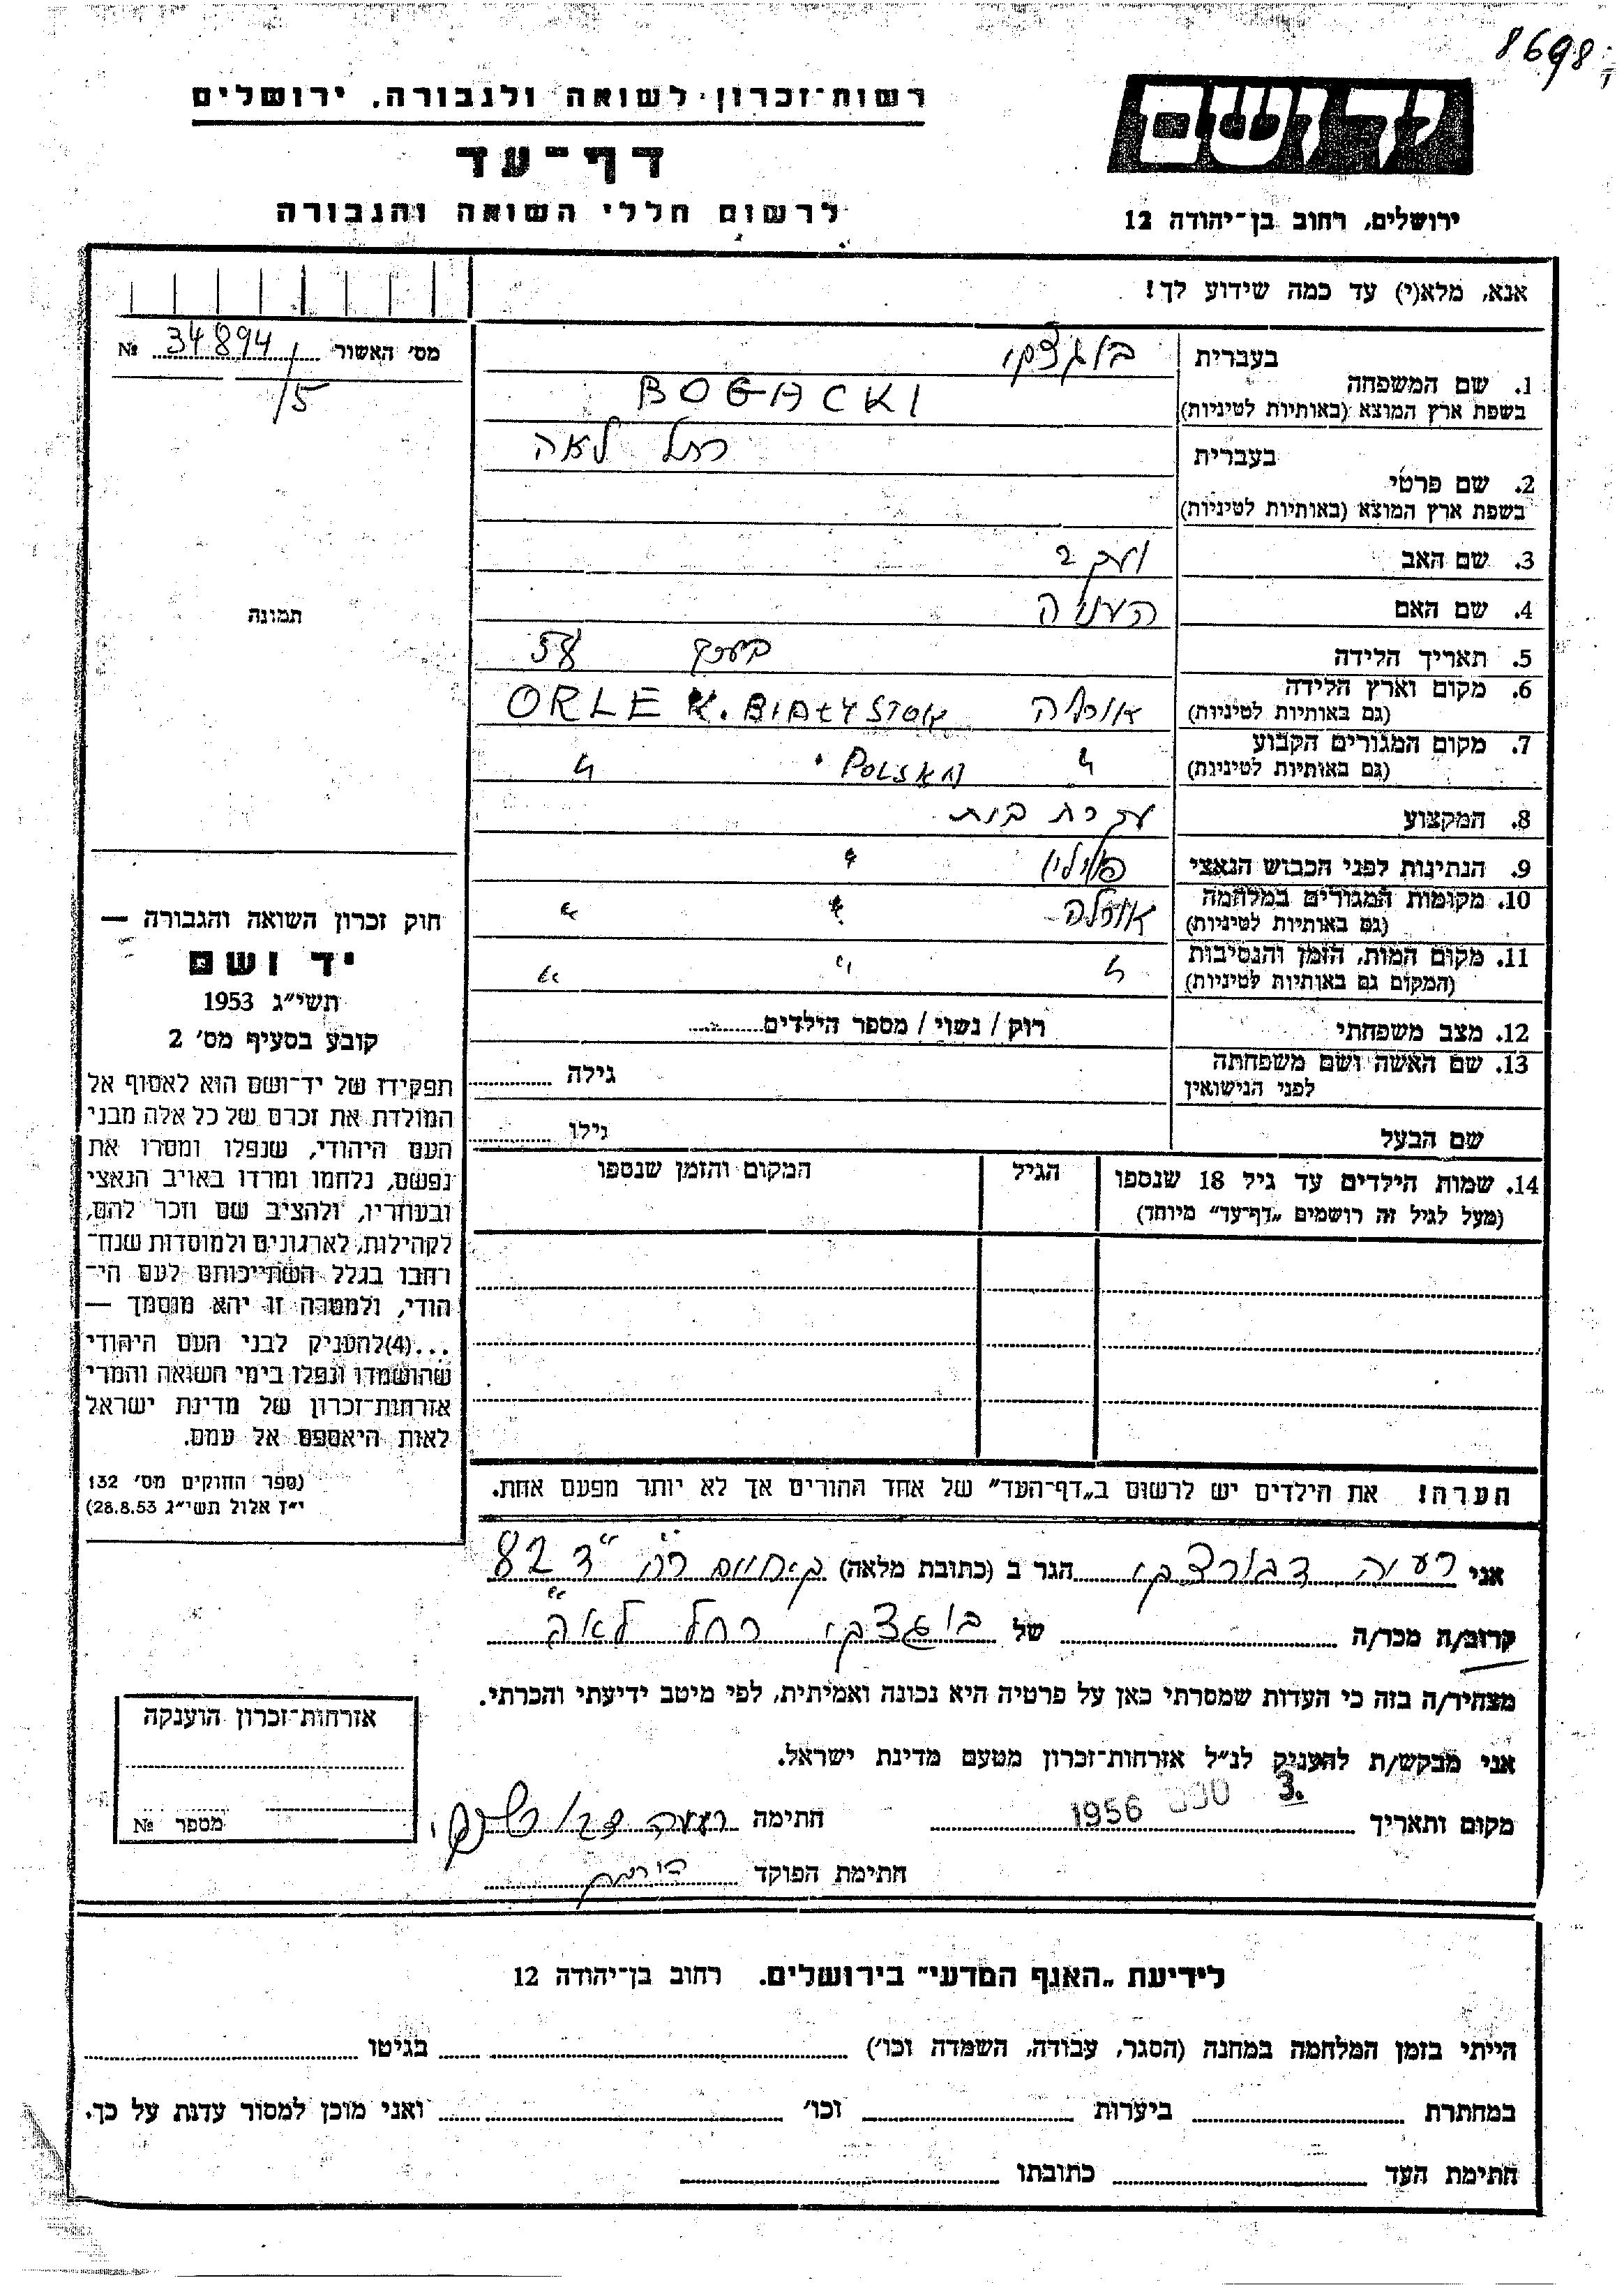 8698
יד ושם
רשות־זכרון לשואה ולגבורה, ירושלים
דף־עד
לרשום חללי השואה והגבורה
ירושלים, רחוב בן־יהודה 12
אנא, מלא(י) עד כמה שידוע לך!
מס' האשור 34894 №
/5
בעברית בוגצקי
1. שם המשפחה
בשפת ארץ המוצא (באותיות לטיניות) BOGACKI
בעברית רחל לאה
2. שם פרטי
בשפת ארץ המוצא (באותיות לטיניות)
3. שם האב
4. שם האם
תמונה
5. תאריך הלידה
6. מקום וארץ הלידה אורלה ORLE K. BIAŁYSTOK
(גם באותיות לטיניות)
7. מקום המגורים הקבוע " POLSKA "
(גם באותיות לטיניות)
8. המקצוע עקרת בית
9. הנתינות לפני הכבוש הנאצי פולין "
10. מקומות המגורים במלחמה אורלה " "
(גם באותיות לטיניות)
11. מקום המות, הזמן והנסיבות " " "
(המקום גם באותיות לטיניות)
12. מצב משפחתי רוק / נשוי / מספר הילדים
13. שם האשה ושם משפחתה גילה
לפני הנישואין
שם הבעל גילו
14. שמות הילדים עד גיל 18 שנספו הגיל המקום והזמן שנספו
(מעל לגיל זה רושמים „דף־עד" מיוחד)
חוק זכרון השואה והגבורה —
יד ושם
תשי"ג 1953
קובע בסעיף מס' 2
תפקידו של יד־ושם הוא לאסוף אל
המולדת את זכרם של כל אלה מבני
העם היהודי, שנפלו ומסרו את
נפשם, נלחמו ומרדו באויב הנאצי
ובעוזריו, ולהציב שם וזכר להם,
לקהילות, לארגונים ולמוסדות שנח־
רבו בגלל השתייכותם לעם הי־
הודי, ולמטרה זו יהא מוסמך —
...(4)להעניק לבני העם היהודי
שהושמדו ונפלו בימי השואה והמרי
אזרחות־זכרון של מדינת ישראל
לאות היאספם אל עמם.
(ספר החוקים מס' 132
י"ז אלול תשי"ג 28.8.53)
הערה! את הילדים יש לרשום ב„דף־העד" של אחד ההורים אך לא יותר מפעם אחת.
אני הגר ב (כתובת מלאה) 82
קרוב/ה מכר/ה של בוגצקי רחל לאה
מצהיר/ה בזה כי העדות שמסרתי כאן על פרטיה היא נכונה ואמיתית, לפי מיטב ידיעתי והכרתי.
אני מבקש/ת להעניק לנ"ל אזרחות־זכרון מטעם מדינת ישראל.
מקום ותאריך 3. 1956 חתימה
חתימת הפוקד
אזרחות־זכרון הוענקה
מספר №
לידיעת „האגף המדעי" בירושלים. רחוב בן־יהודה 12
הייתי בזמן המלחמה במחנה (הסגר, עבודה, השמדה וכו') בגיטו
במחתרת ביערות וכו' ואני מוכן למסור עדות על כך.
חתימת העד כתובתו